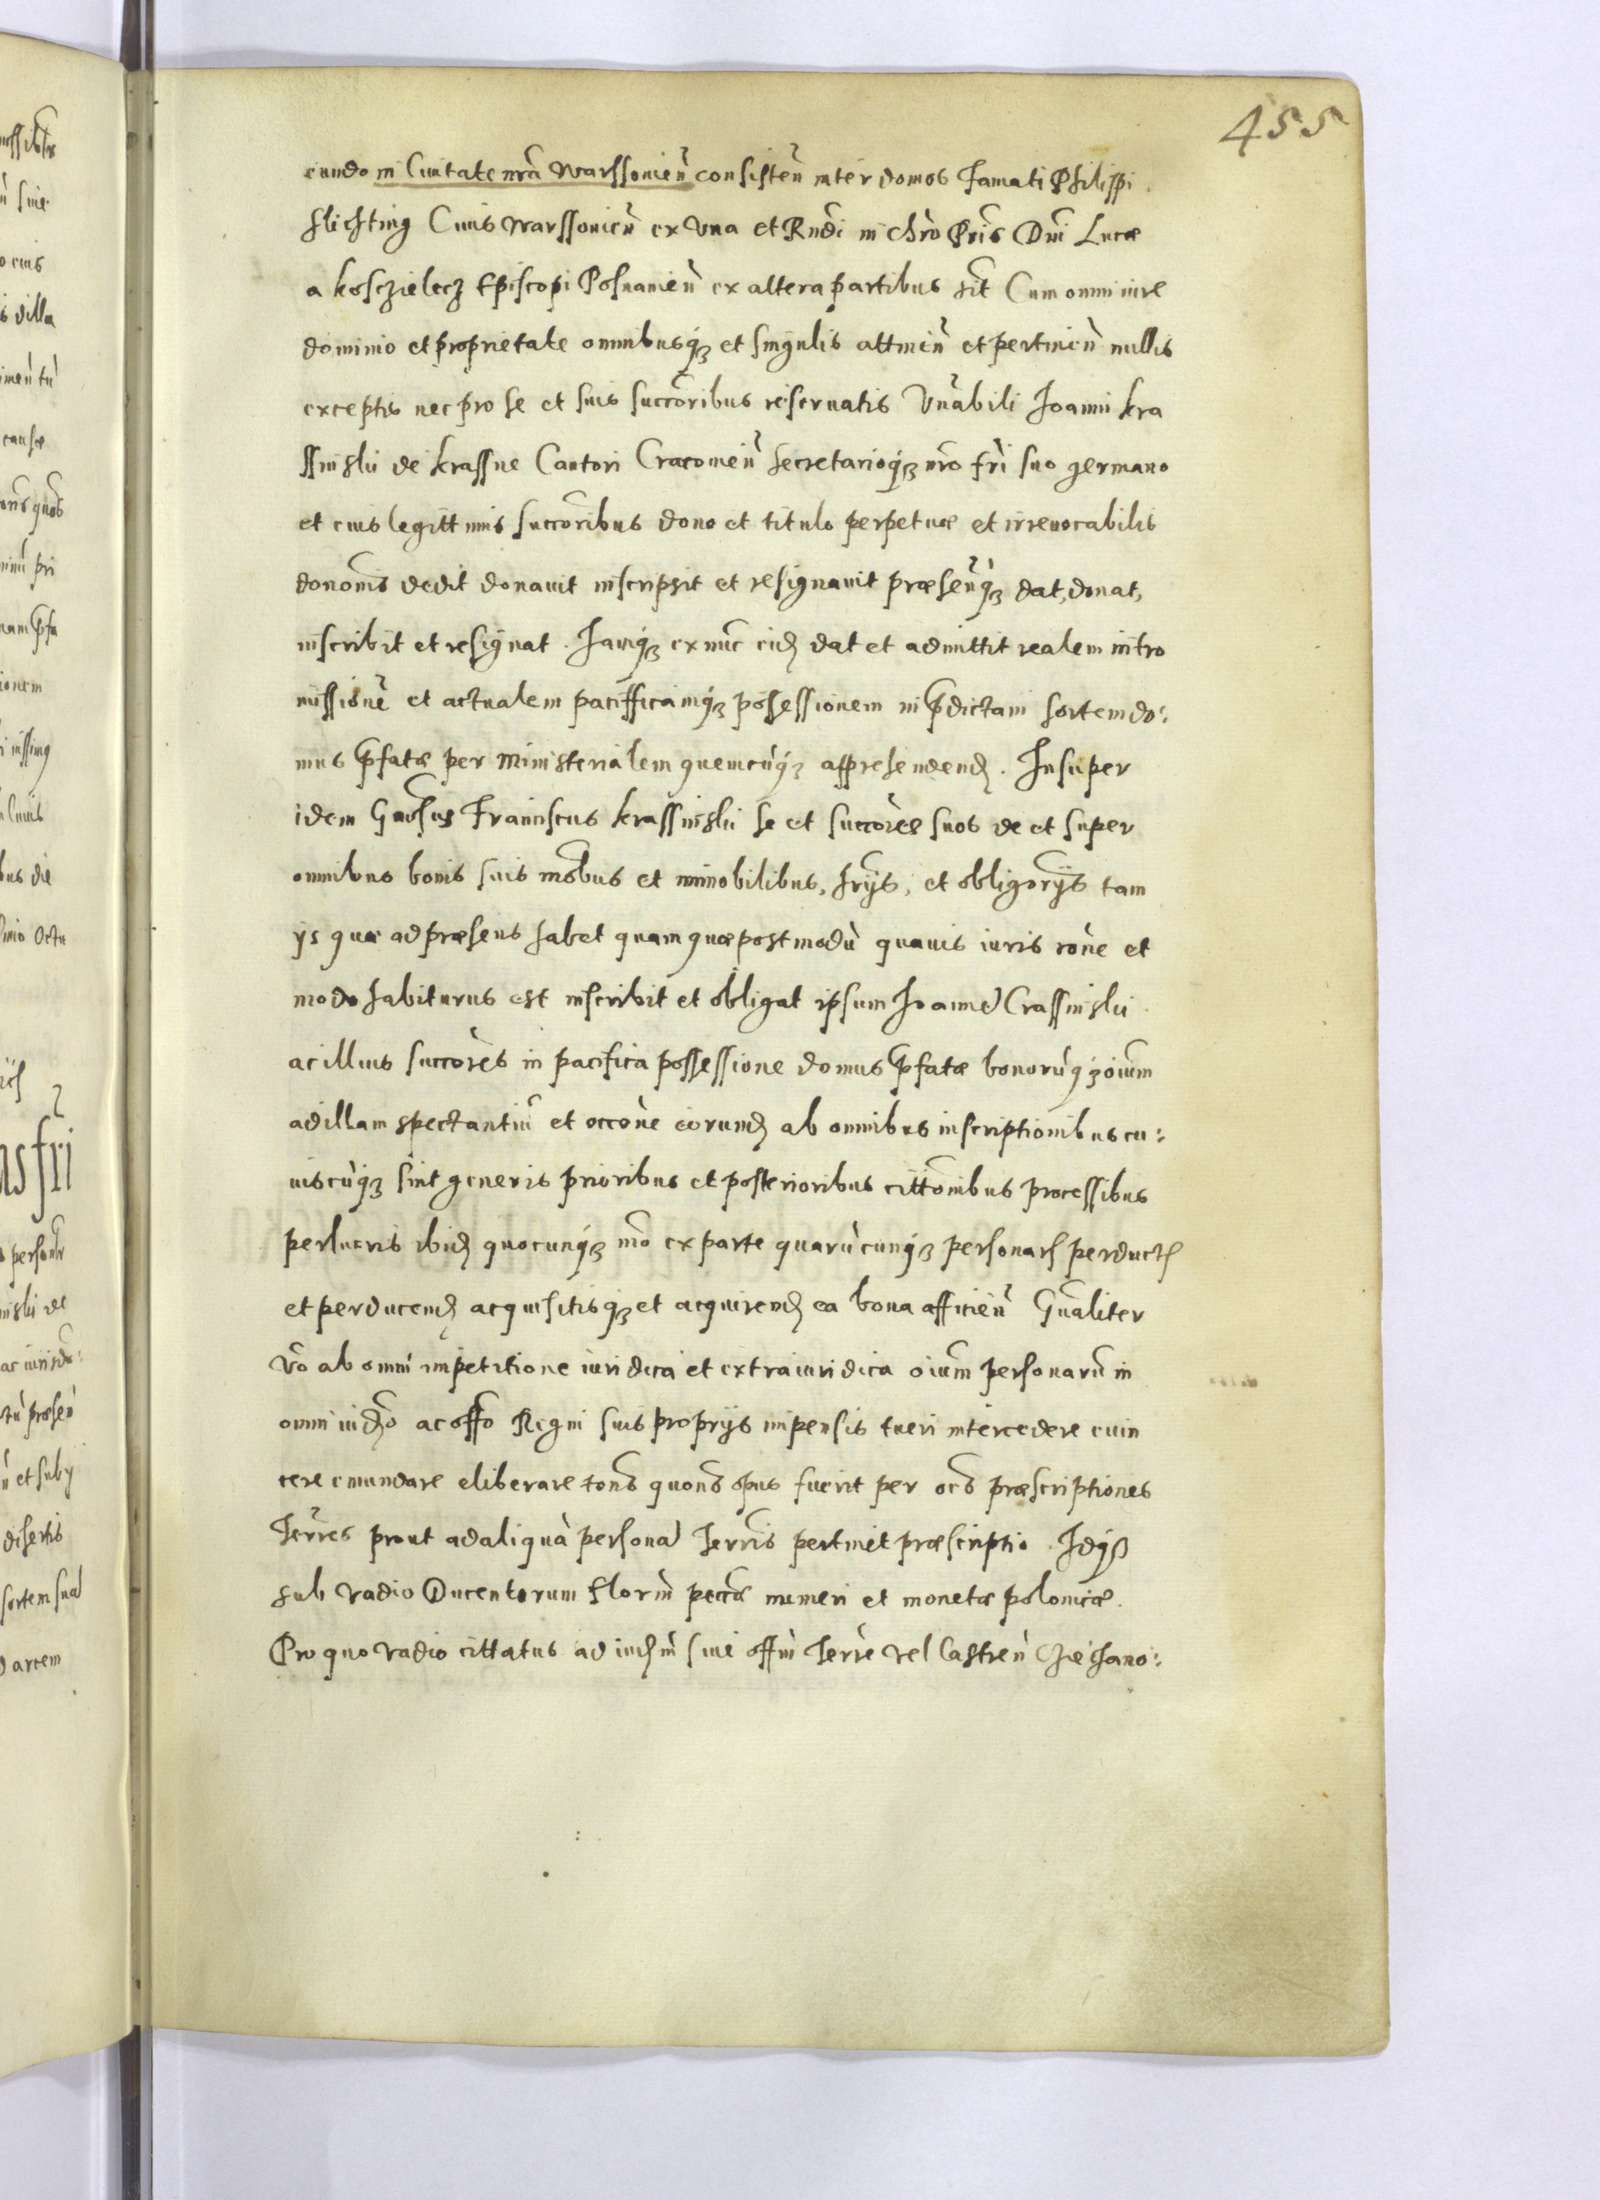 455
eundo in Civitate nrã Warssovien̄ consisten̄ inter domos famati Philippi
Slichting Civis Warssovien̄ ex vna et Rndi in Chro Pris Dni Lucæ
a Kosczielecz Episcopi Posnanien̄ ex altera partibus sit Cum omni iure
dominio et proprietate omnibusq̃ et singulis attinen̄ et pertinen̄ nullis
exceptis nec pro se et suis succoribus reseruatis Vnãbili Joanni Kra
ssinskii de Krassne Cantori Cracovien̄ Secretarioq̃ nrõ frĩ suo germano
et eius legittimis succoribus dono et titulo perpetuæ et irreuocabilis
donõnis dedit donauit inscripsit et resignauit præsenq̃ dat, donat,
inscribit et resignat. Jamq̃ ex nũc eid dat et admittit realem intro
missionẽ et actualem pacifficamq̃ possessionem in p̃dictam sortem do:
mus p̃fatæ per Ministerialem quemcũq̃ apprehendend. Insuper
idem Gnõsus Franciscus Krassinskii se et succores suos de et super
omnibus bonis suis mõbus et immobilibus, hr̃ijs, et obligorijs tam
ijs quæ ad præsens habet quam quæ postmodũ quauis iuris rõne et
modo habiturus est inscribit et obligat ipsum Joannẽ Crassinskii
ac illius succores in pacifica possessione domus p̃fatæ bonorũq̃ oium
ad illam spectantiũ et occõne eorund ab omnibus inscriptionibus cu:
iuscũq̃ sint generis prioribus et posterioribus cittõnibus processibus
perlucris ibid quocunq̃ mõ ex parte quarũcunq̃ personar perduct
et perducend acquisitisq̃ et acquirend ea bona afficien̄ Gnãliter
võ ab omni impetitione iuridica et extraiuridica oium personarũ in
omni iudõ ac offo Regni suis proprijs impensis tueri intercedere euin
cere emundare eliberare tons quons opus fuerit per ões præscriptiones
Terres prout ad aliquã personã Terris pertinet præscriptio. Idq̃
sub vadio Ducentorum florin̄ peccæ numeri et monetæ polonicæ.
Pro quo vadio cittatus ad iudm̄ siue offm̄ Terre vel Castren̄ Czechano: